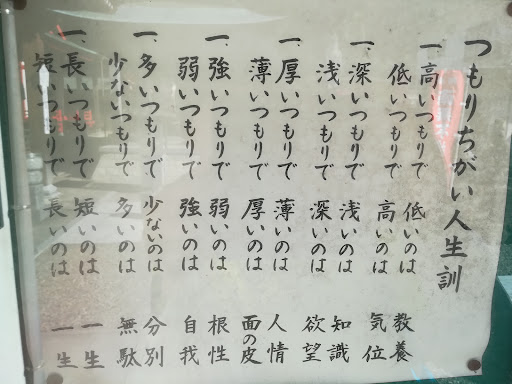 つもりちがい人生訓
一、高いつもりで 低いのは 教養
低いつもりで 高いのは 気位
一、深いつもりで 浅いのは 知識
浅いつもりで 深いのは 欲望
一、厚いつもりで 薄いのは 人情
薄いつもりで 厚いのは 面の皮
一、強いつもりで 弱いのは 根性
弱いつもりで 強いのは 自我
一、多いつもりで 少ないのは 分別
少ないつもりで 多いのは 無駄
一、長いつもりで 短いのは 一生
短いつもりで 長いのは 一生